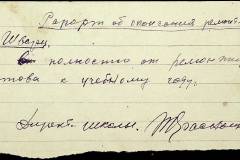 Рапорт об окончании ремонта
Школа.
полностью от ремонти
това к учебному году.
Директ школы.